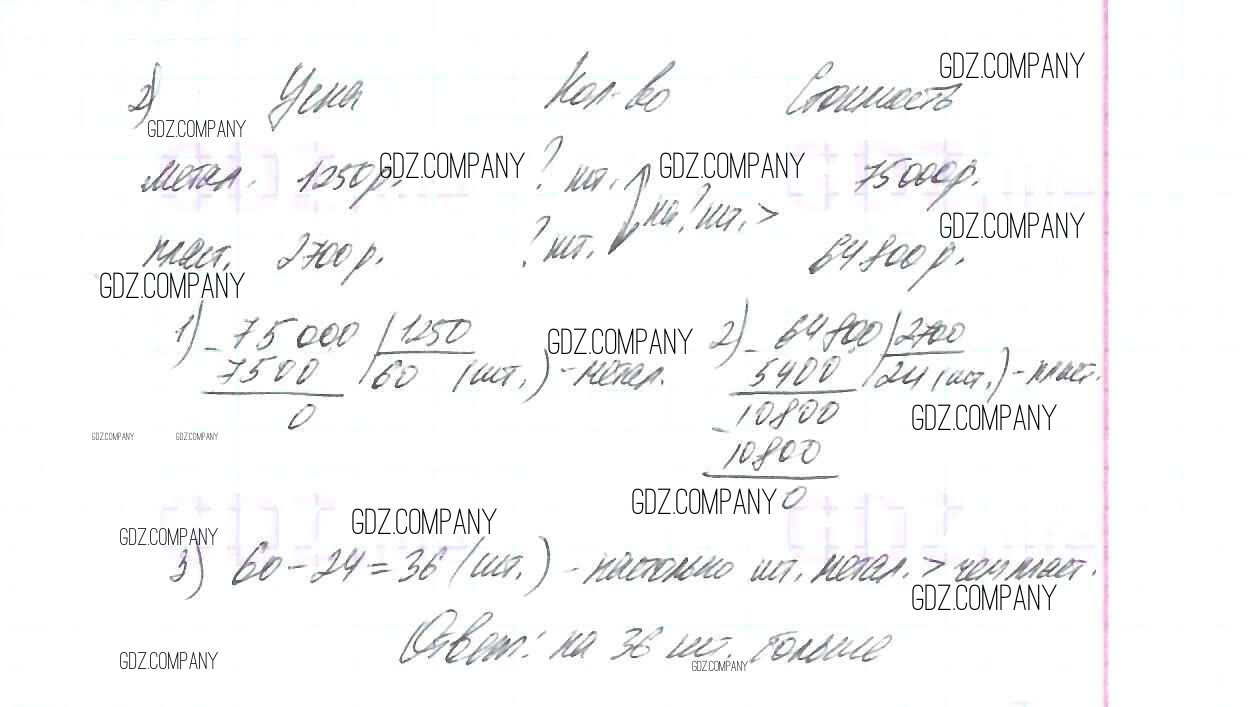 2) Цена Кол-во Стоимость GDZ.COMPANY
GDZ.COMPANY
метал. 1250р. GDZ.COMPANY ? шт. GDZ.COMPANY 75000р.
на ? шт. >
GDZ.COMPANY
пласт. 2700р. ? шт. 64800р.
GDZ.COMPANY
1) - 75000 | 1250 GDZ.COMPANY 2) - 64800 | 2700
7500 | 60 (шт.) - метал. 5400 | 24 (шт.) - пласт.
0 - 10800 GDZ.COMPANY
GDZ.COMPANY GDZ.COMPANY 10800
GDZ.COMPANY 0
GDZ.COMPANY GDZ.COMPANY
3) 60 - 24 = 36 (шт.) - настолько шт. метал. > чем пласт.
GDZ.COMPANY
Ответ: на 36 шт. больше
GDZ.COMPANY GDZ.COMPANY